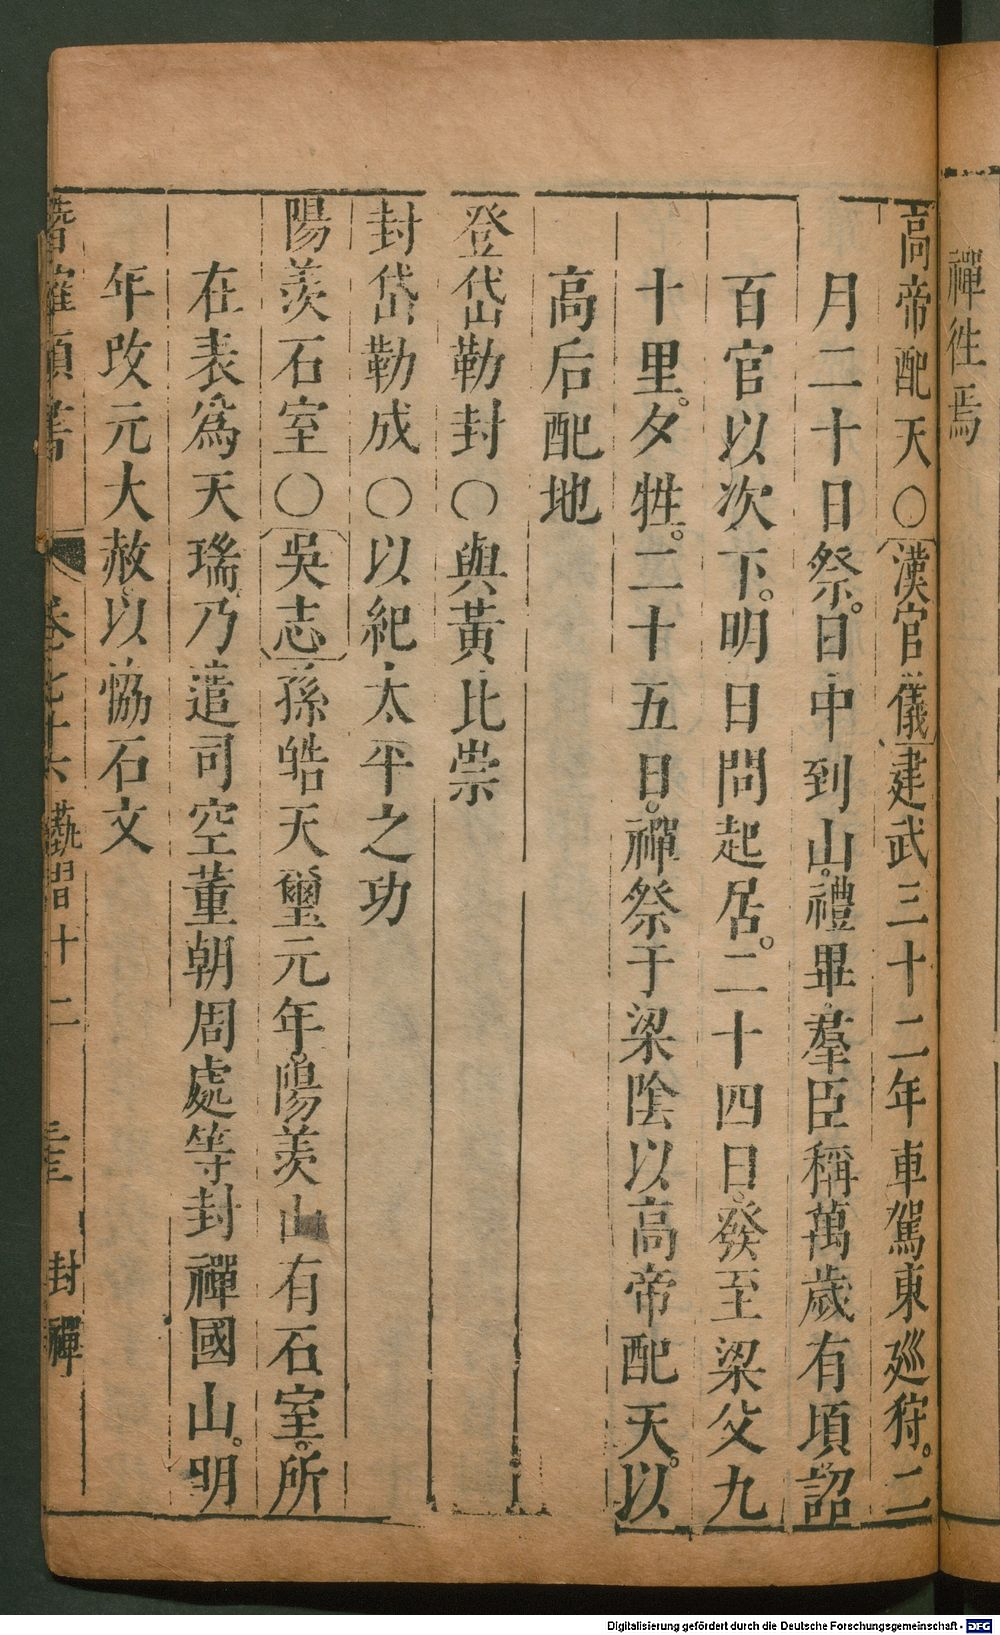 禪徃焉
高帝配天○漢官儀建武三十二年車駕東廵狩。二
月二十日祭。日中到山。禮畢。羣臣稱萬歲有頃。詔
百官以次下。明日問起居。二十四日。發至梁父九
十里。夕牲。二十五日。禪祭于梁陰以高帝配天。以
高后配地
登岱勒封○與黃比崇
封岱勒成○以紀太平之功
陽羨石室○吳志孫皓天璽元年。陽羨山有石室。所
在表爲天瑞。乃遣司空董朝周處等封禪國山。明
年改元大赦。以恊石文
潛確類書 卷七十六 藝習十二 封禪
Digitalisierung gefördert durch die Deutsche Forschungsgemeinschaft - DFG